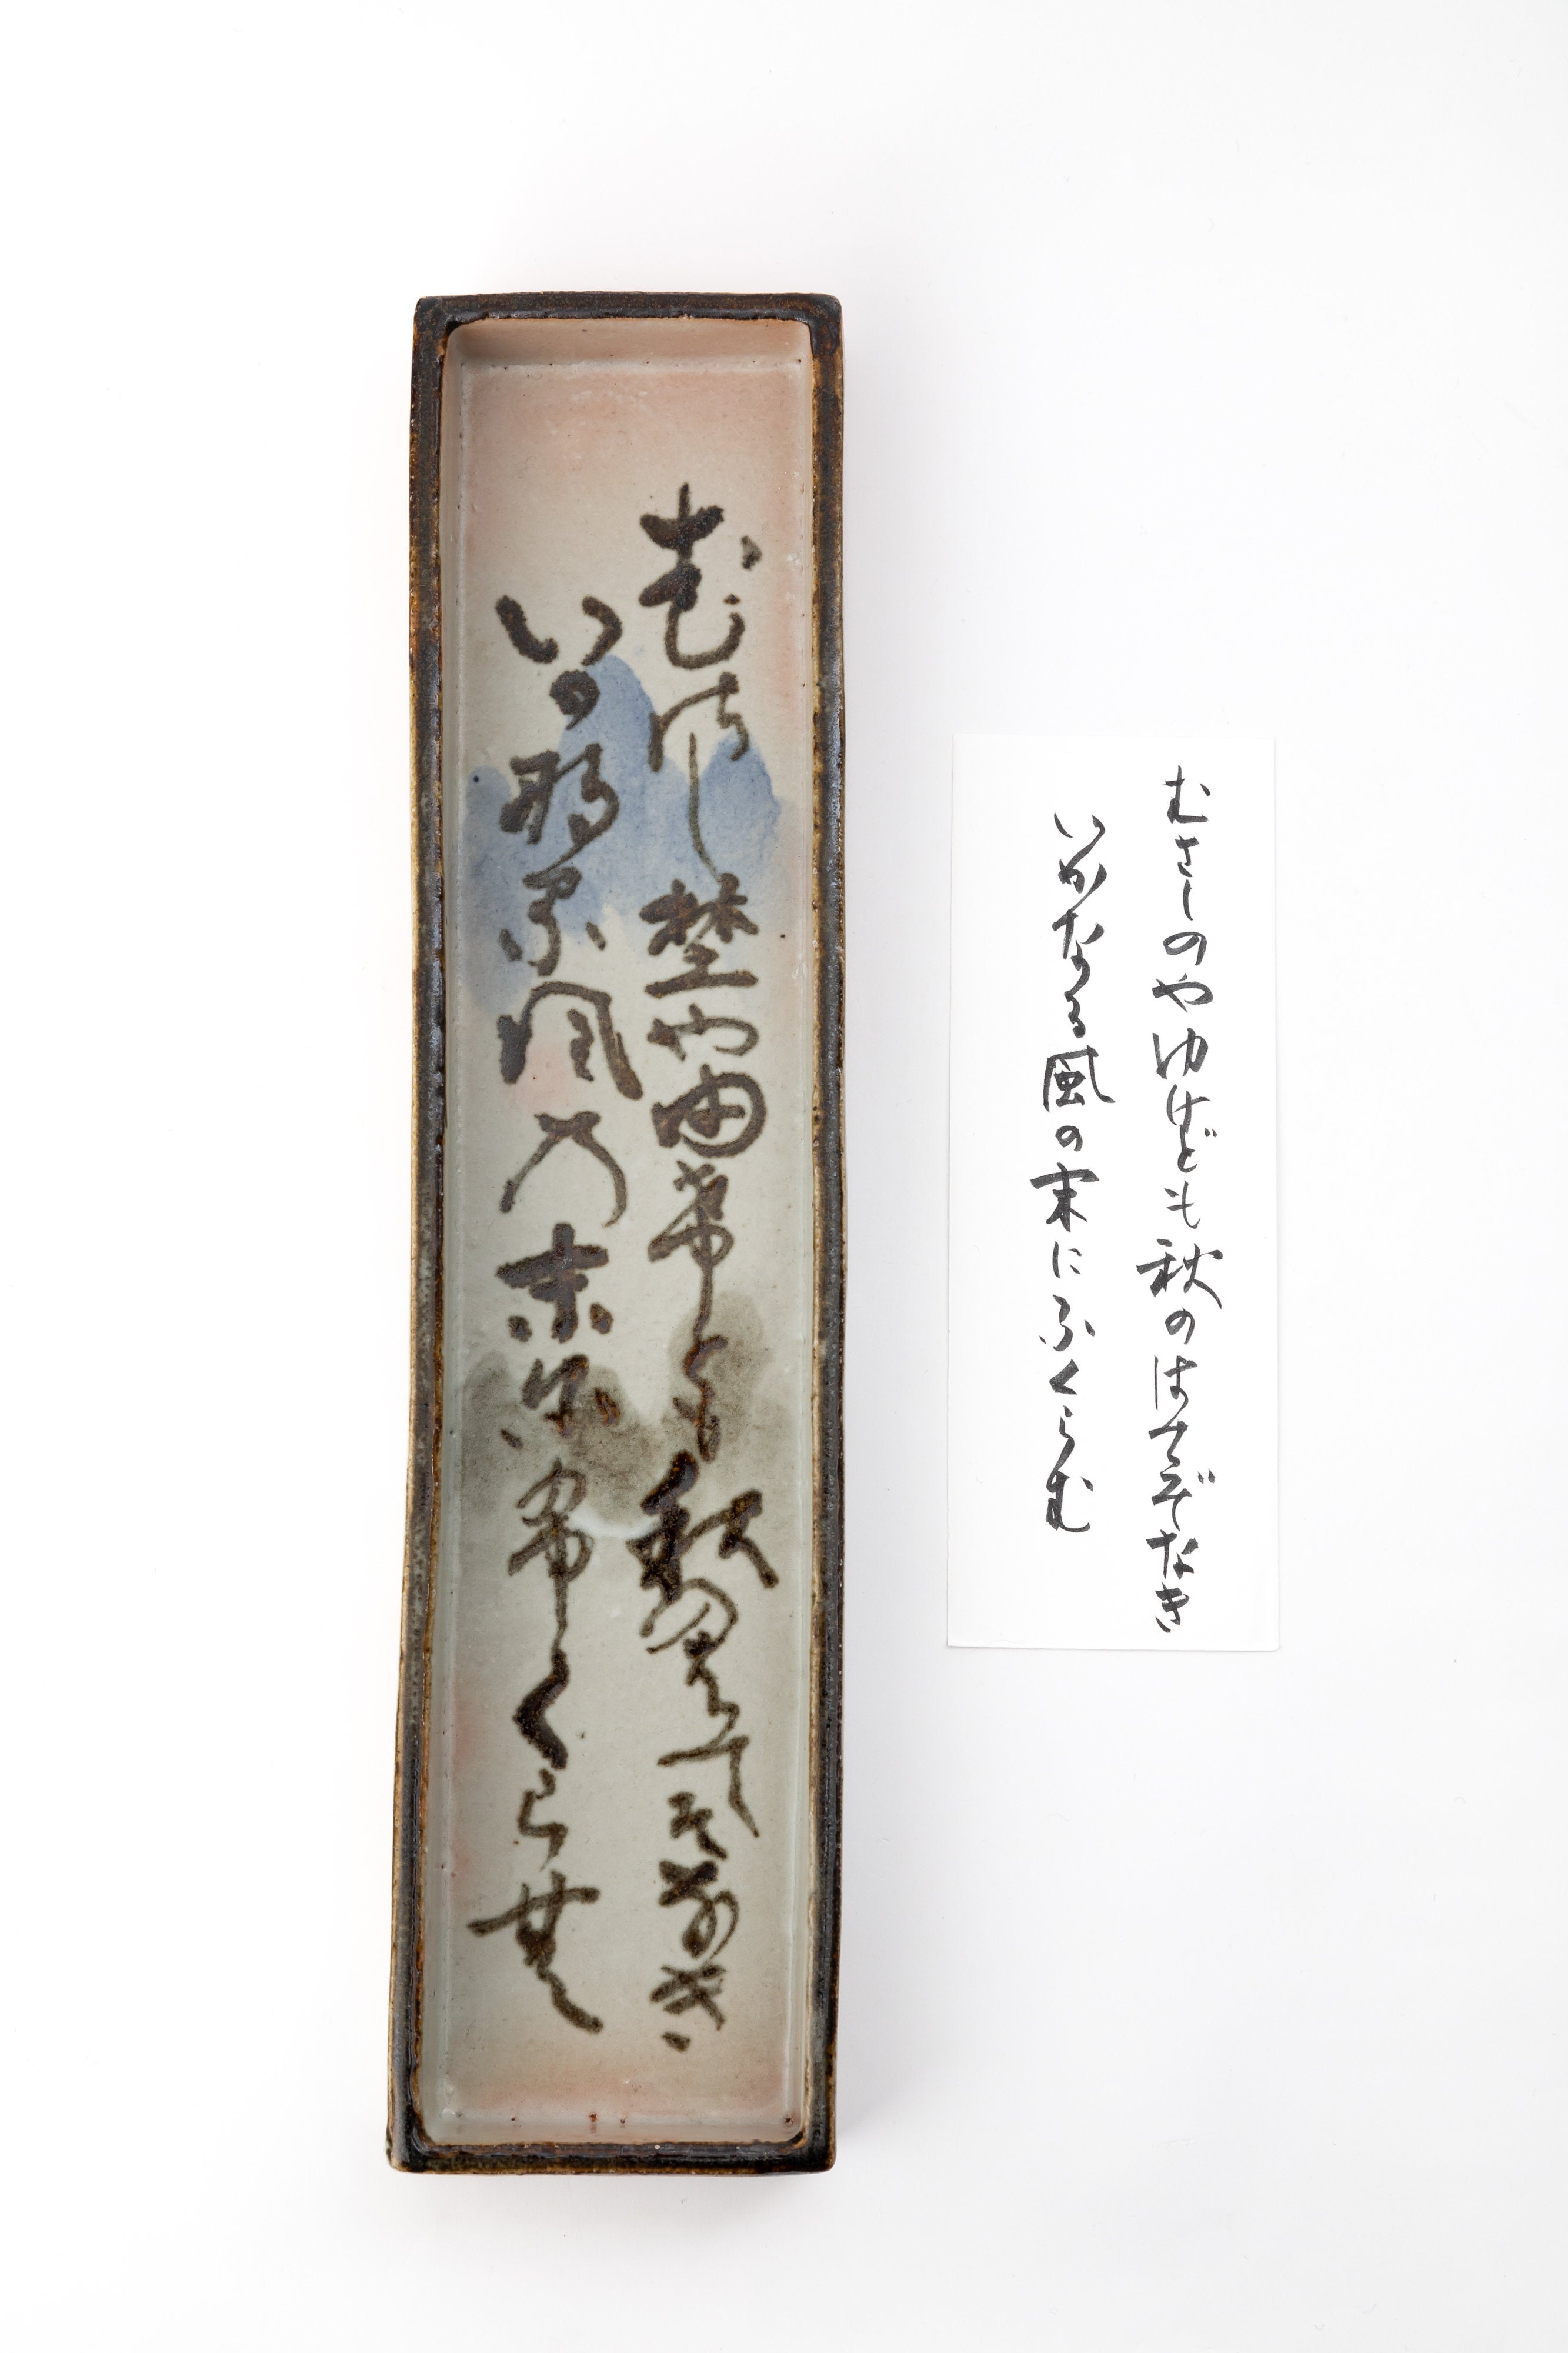 むさし野や由希とも秋のはてそなき
いか那る風乃末尓布くら無
むさしのやゆけども秋のはてぞなき
いかなる風の末にふくらむ